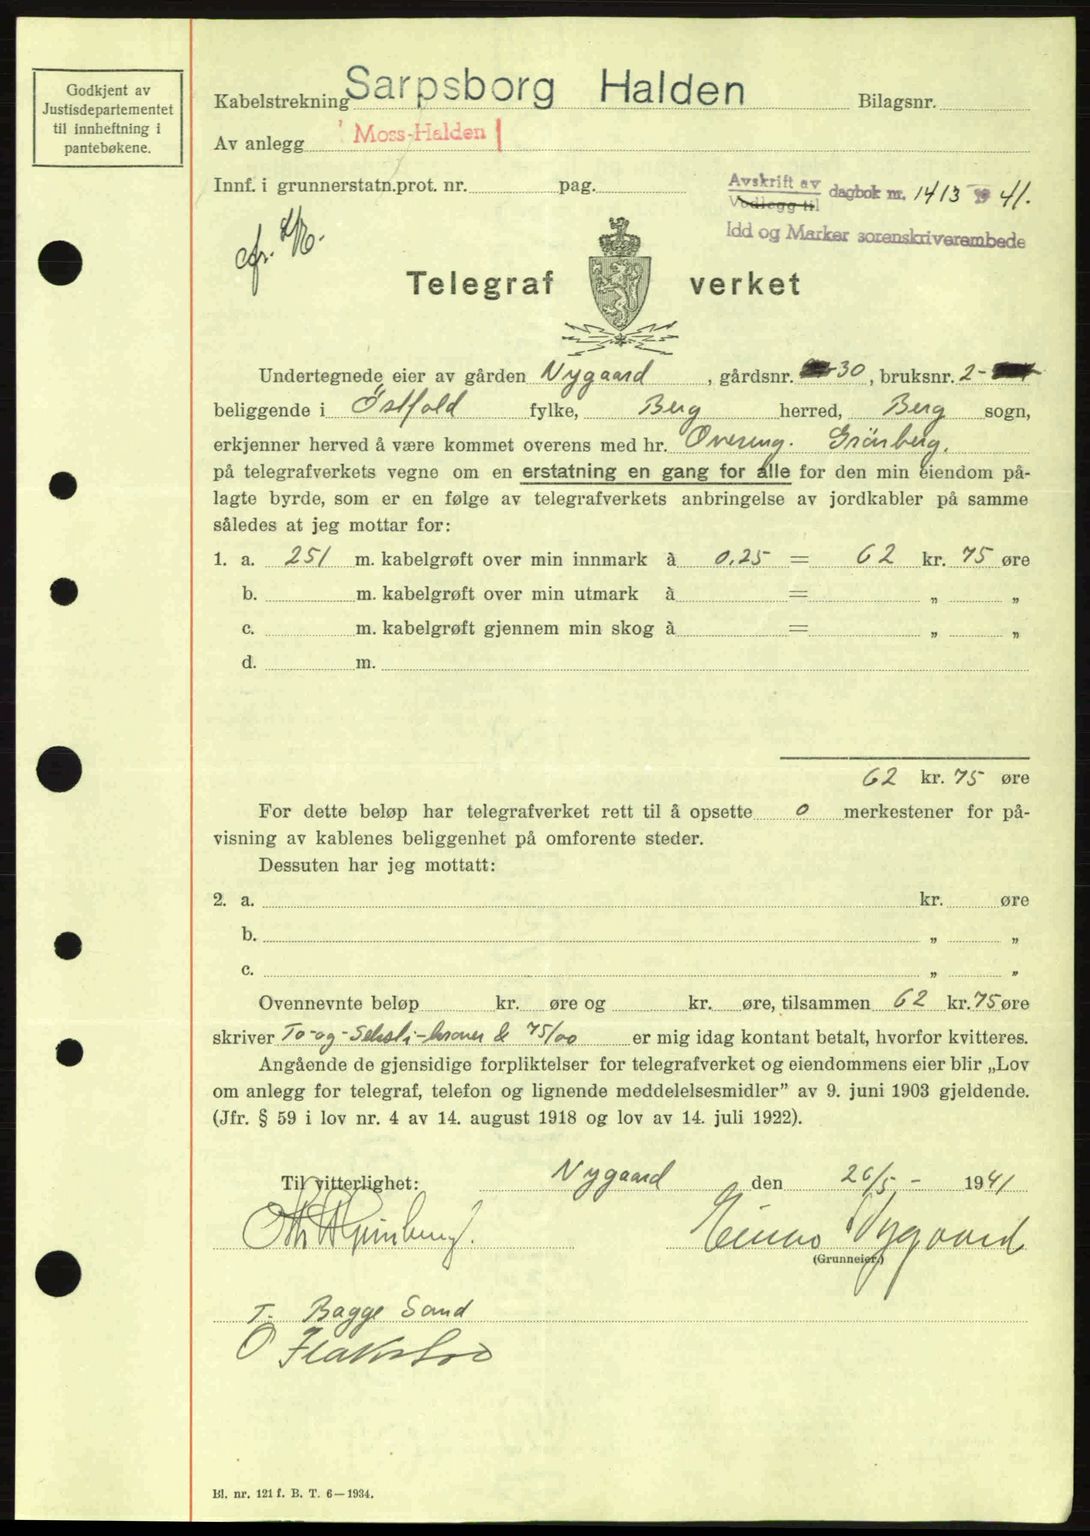 Godkjent av
Justisdepartementet
til innheftning i
pantebøkene.
Kabelstrekning Sarpsborg Halden Bilagsnr.
Av anlegg Moss-Halden
Innf. i grunnerstatn.prot. nr. pag.
Avskrift av
Vedlegg til dagbok nr. 1413 19 41.
Idd og Marker sorenskriverembede
cfr.
Telegraf verket
Undertegnede eier av gården Nygaard, gårdsnr. 30, bruksnr. 2-
beliggende i Östfold fylke, Berg herred, Berg sogn,
erkjenner herved å være kommet overens med hr. Overing. Grönberg.
på telegrafverkets vegne om en erstatning en gang for alle for den min eiendom på-
lagte byrde, som er en følge av telegrafverkets anbringelse av jordkabler på samme
således at jeg mottar for:
1. a. 251 m. kabelgrøft over min innmark à 0.25 = 62 kr. 75 øre
b. m. kabelgrøft over min utmark à = „ „
c. m. kabelgrøft gjennem min skog à = „ „
d. m.
62 kr. 75 øre
For dette beløp har telegrafverket rett til å opsette 0 merkestener for på-
visning av kablenes beliggenhet på omforente steder.
Dessuten har jeg mottatt:
2. a. kr. øre
b. „ „
c. „ „
Ovennevnte beløp kr. øre og kr. øre, tilsammen 62 kr. 75 øre
skriver To-og-Seksti-kroner & 75/00 er mig idag kontant betalt, hvorfor kvitteres.
Angående de gjensidige forpliktelser for telegrafverket og eiendommens eier blir „Lov
om anlegg for telegraf, telefon og lignende meddelelsesmidler” av 9. juni 1903 gjeldende.
(Jfr. § 59 i lov nr. 4 av 14. august 1918 og lov av 14. juli 1922).
Til vitterlighet: Nygaard den 26/5 - 1941
Nygaard
(Grunneier.)
T. Bagge Sand
O
Bl. nr. 121 f. B. T. 6—1934.